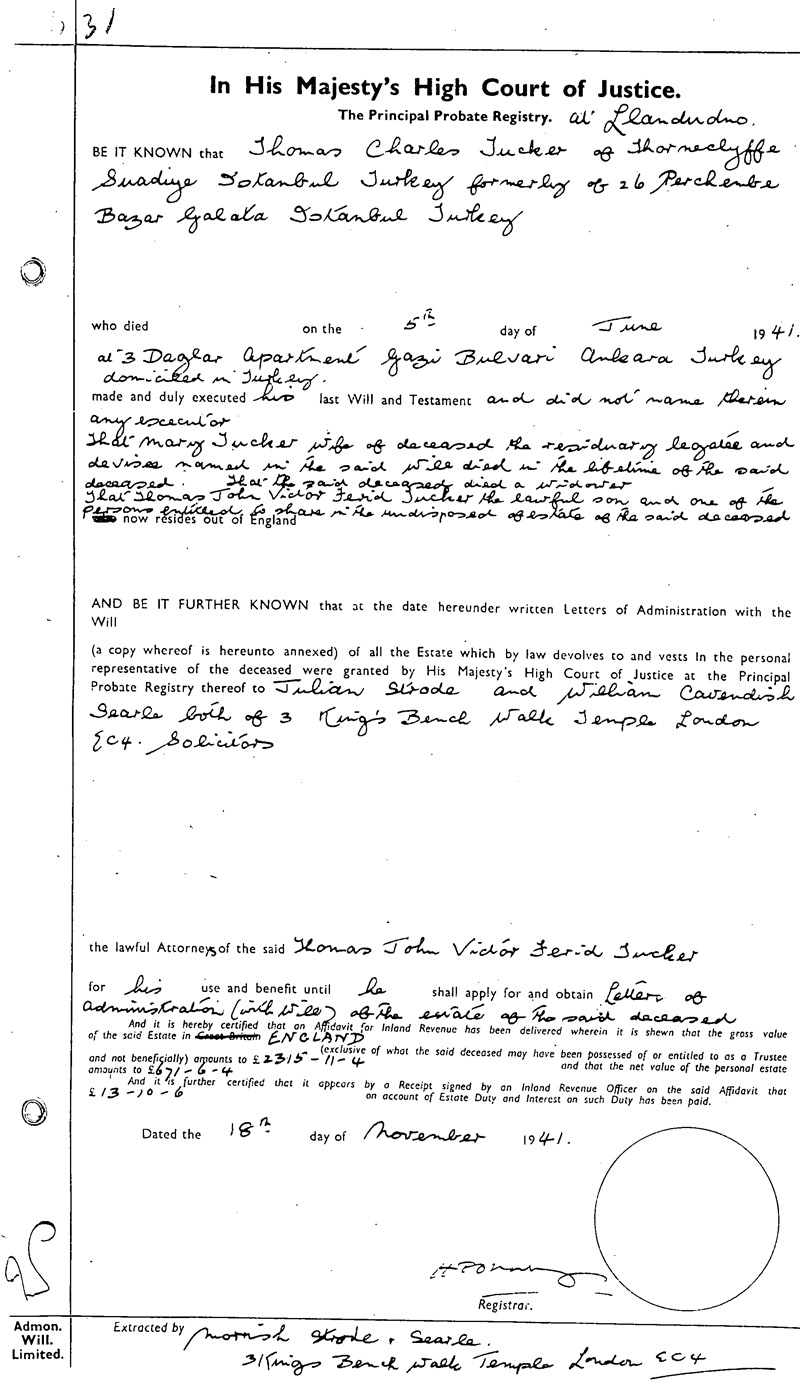 31
In His Majesty's High Court of Justice.
The Principal Probate Registry. at Llandudno.
BE IT KNOWN that Thomas Charles Tucker of Thorneclyffe
Suadiye Istanbul Turkey formerly of 26 Perchenbe
Bazar Galata Istanbul Turkey
who died on the 5th day of June 1941.
at 3 Daglar Apartment Gazi Bulvari Ankara Turkey
domiciled in Turkey.
made and duly executed his last Will and Testament and did not name therein
any executor
That Mary Tucker wife of deceased the residuary legatee and
devisee named in the said will died in the lifetime of the said
deceased. That the said deceased died a widower
That Thomas John Victor Ferid Tucker the lawful son and one of the
persons entitled to share in the undisposed of estate of the said deceased
now resides out of England
AND BE IT FURTHER KNOWN that at the date hereunder written Letters of Administration with the
Will
(a copy whereof is hereunto annexed) of all the Estate which by law devolves to and vests in the personal
representative of the deceased were granted by His Majesty's High Court of Justice at the Principal
Probate Registry thereof to Julian Strode and William Cavendish
Searle both of 3 King's Bench Walk Temple London
EC4. Solicitors
the lawful Attorneys of the said Thomas John Victor Ferid Tucker
for his use and benefit until he shall apply for and obtain Letters of
Administration (with Will) of the estate of the said deceased
And it is hereby certified that an Affidavit for Inland Revenue has been delivered wherein it is shewn that the gross value
of the said Estate in Great Britain ENGLAND
(exclusive of what the said deceased may have been possessed of or entitled to as a Trustee
and not beneficially) amounts to £2315-11-4 and that the net value of the personal estate
amounts to £671-6-4
And it is further certified that it appears by a Receipt signed by an Inland Revenue Officer on the said Affidavit that
£13-10-6 on account of Estate Duty and Interest on such Duty has been paid.
Dated the 18th day of November 1941.
Registrar.
Admon.
Will.
Limited.
Extracted by Morrish Strode & Searle.
3 Kings Bench Walk Temple London EC4